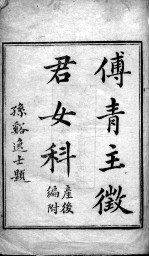 傅青主徵
君女科
產後
編附
孫谿逸士題